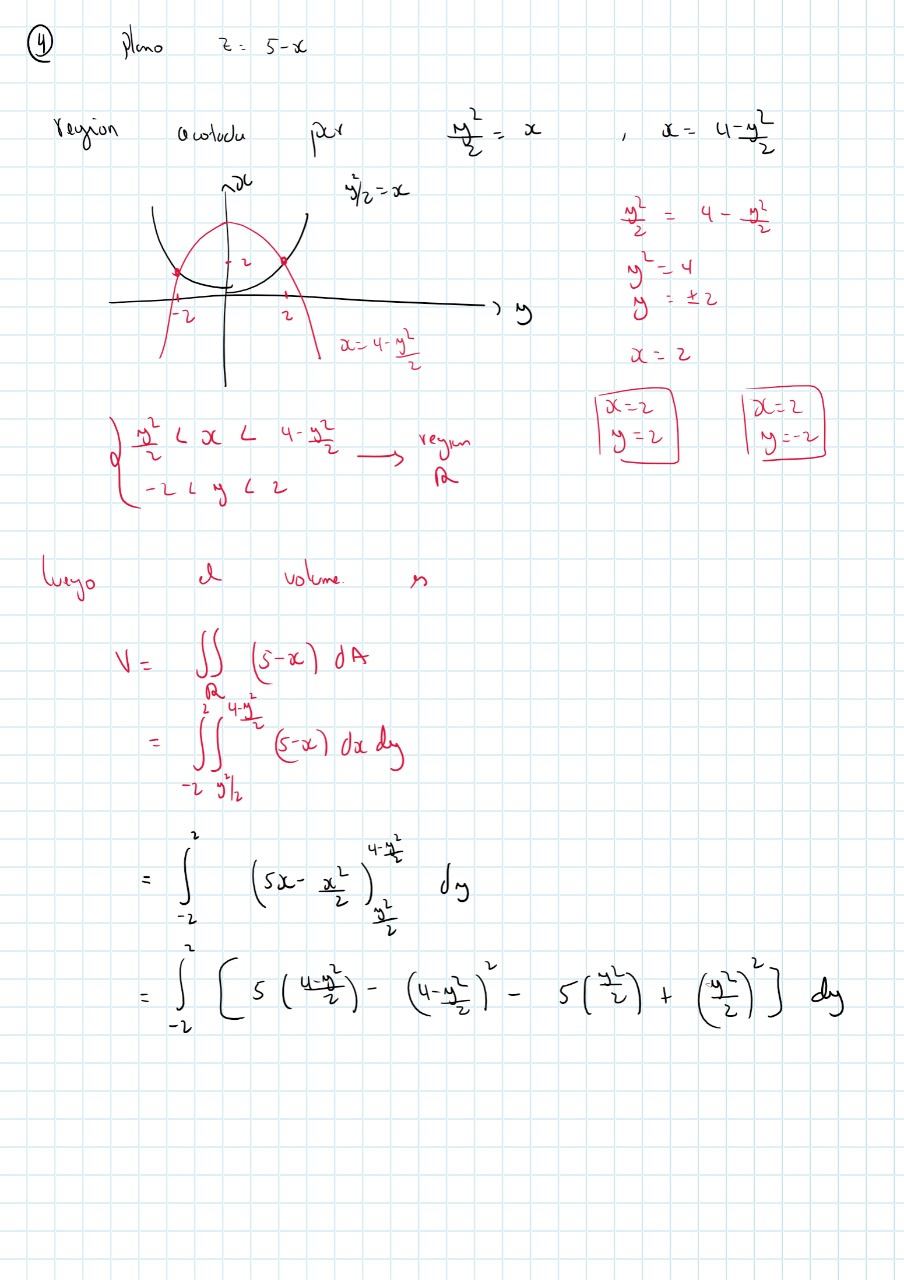 ④ plano z = 5-x
region acotada por y²/2 = x , x = 4-y²/2
x
y²/2 = x
2
-2 2 y
x = 4-y²/2
y²/2 = 4 - y²/2
y² = 4
y = ±2
x = 2
x=2 y=2
x=2 y=-2
{ y²/2 < x < 4-y²/2 → region R
-2 < y < 2
luego el volume es
V = ∬_R (5-x) dA
= ∫_{-2}^{2} ∫_{y²/2}^{4-y²/2} (5-x) dx dy
= ∫_{-2}^{2} (5x - x²/2)_{y²/2}^{4-y²/2} dy
= ∫_{-2}^{2} [ 5(4-y²/2) - (4-y²/2)² - 5(y²/2) + (y²/2)² ] dy